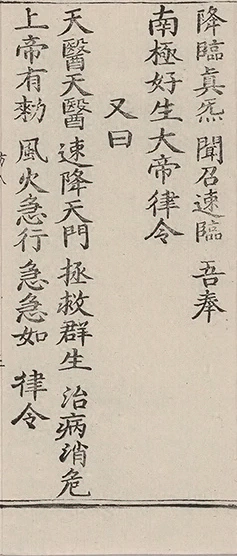 降臨眞炁 聞召速臨 吾奉
南極好生大帝律令
又曰
天醫天醫 速降天門 拯救群生 治病消危
上帝有勑 風火急行 急急如 律令